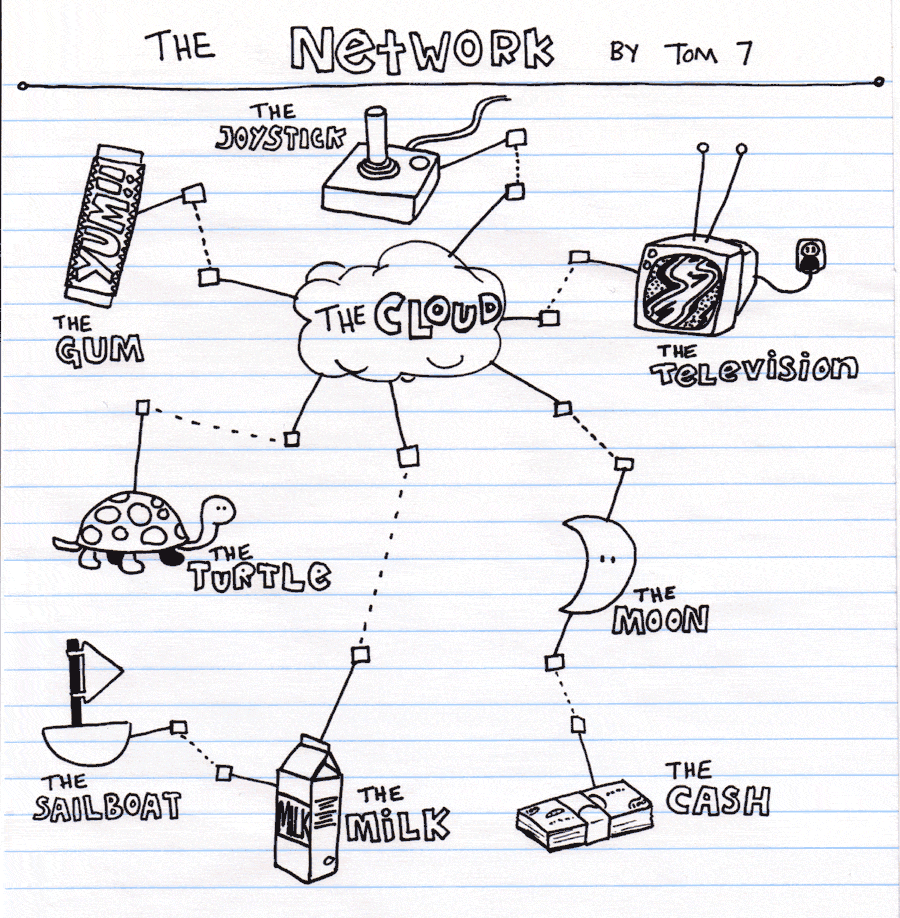 THE NETWORK BY TOM 7
THE
JOYSTICK
YUM!!
THE CLOUD
THE
GUM
THE
TELEVISION
THE
TURTLE
THE
MOON
THE
SAILBOAT
MILK
THE
MILK
THE
CASH